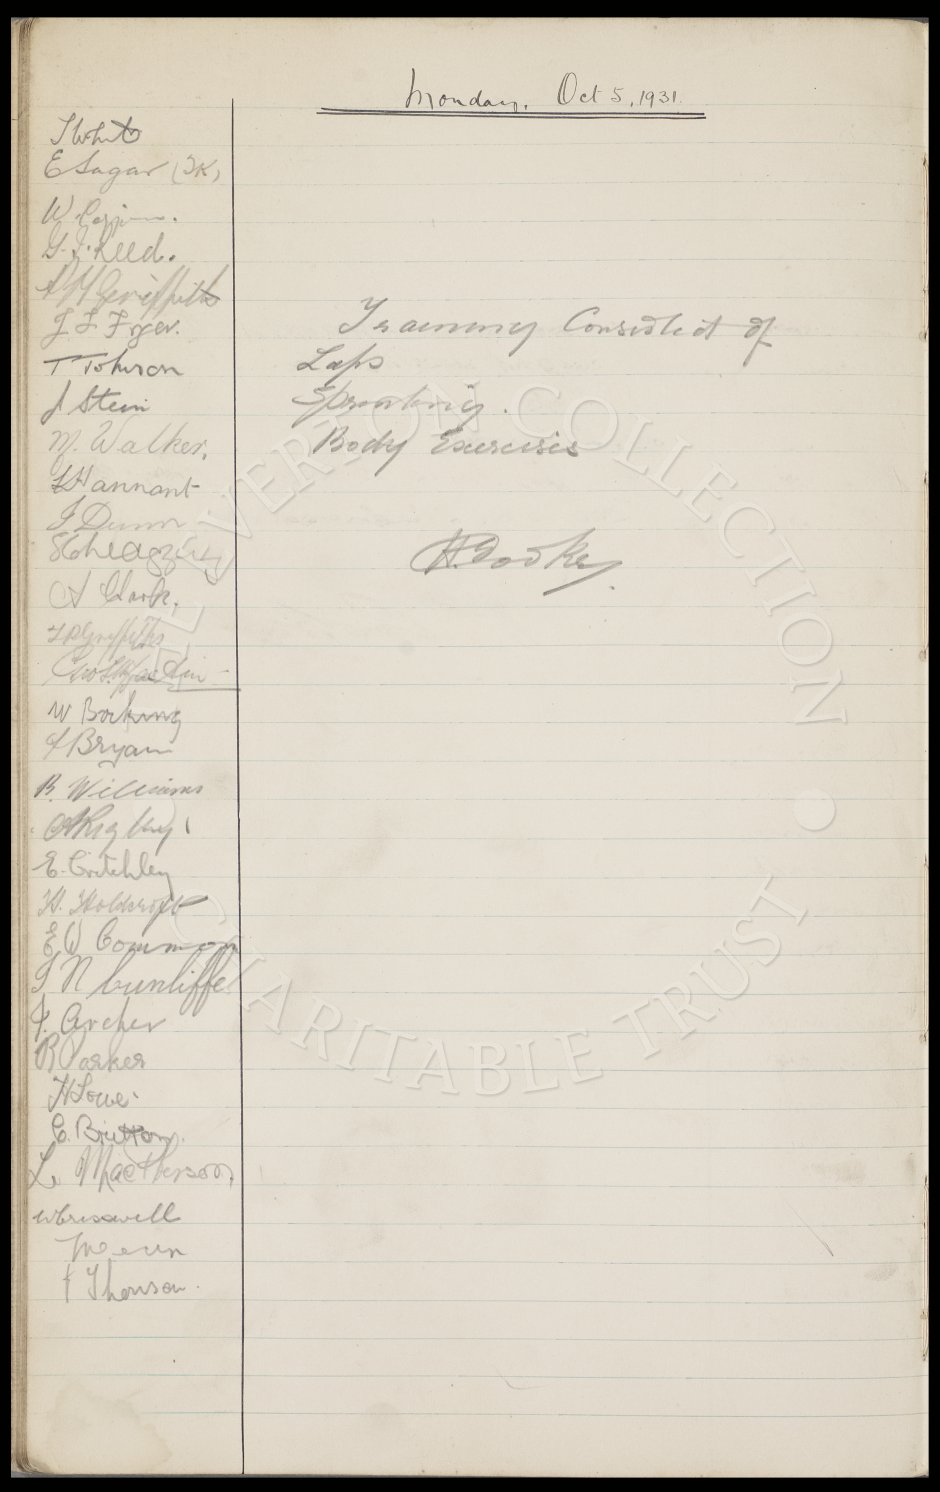 Monday. Oct 5, 1931.
T White
E Sagar (TK)
W.
G. J. Reed.
P H Griffiths
J. F. Fryer.
T Johnson
J Stein
M. Walker.
L Hannant
J Dunn
A Clark.
T P Griffiths
Geo. S.
W Bocking
F Bryan
B. Williams
A Rigby
E. Critchley
H. Holdcroft
E W Common
J N Cunliffe
F. Archer
R Parker
H Lowe.
C. Britton.
L. MacPherson.
W Cresswell
J Thomson.
Training Consisted of
Laps
Sprinting.
Body Exercises
H. Cooke.
THE EVERTON COLLECTION
CHARITABLE TRUST